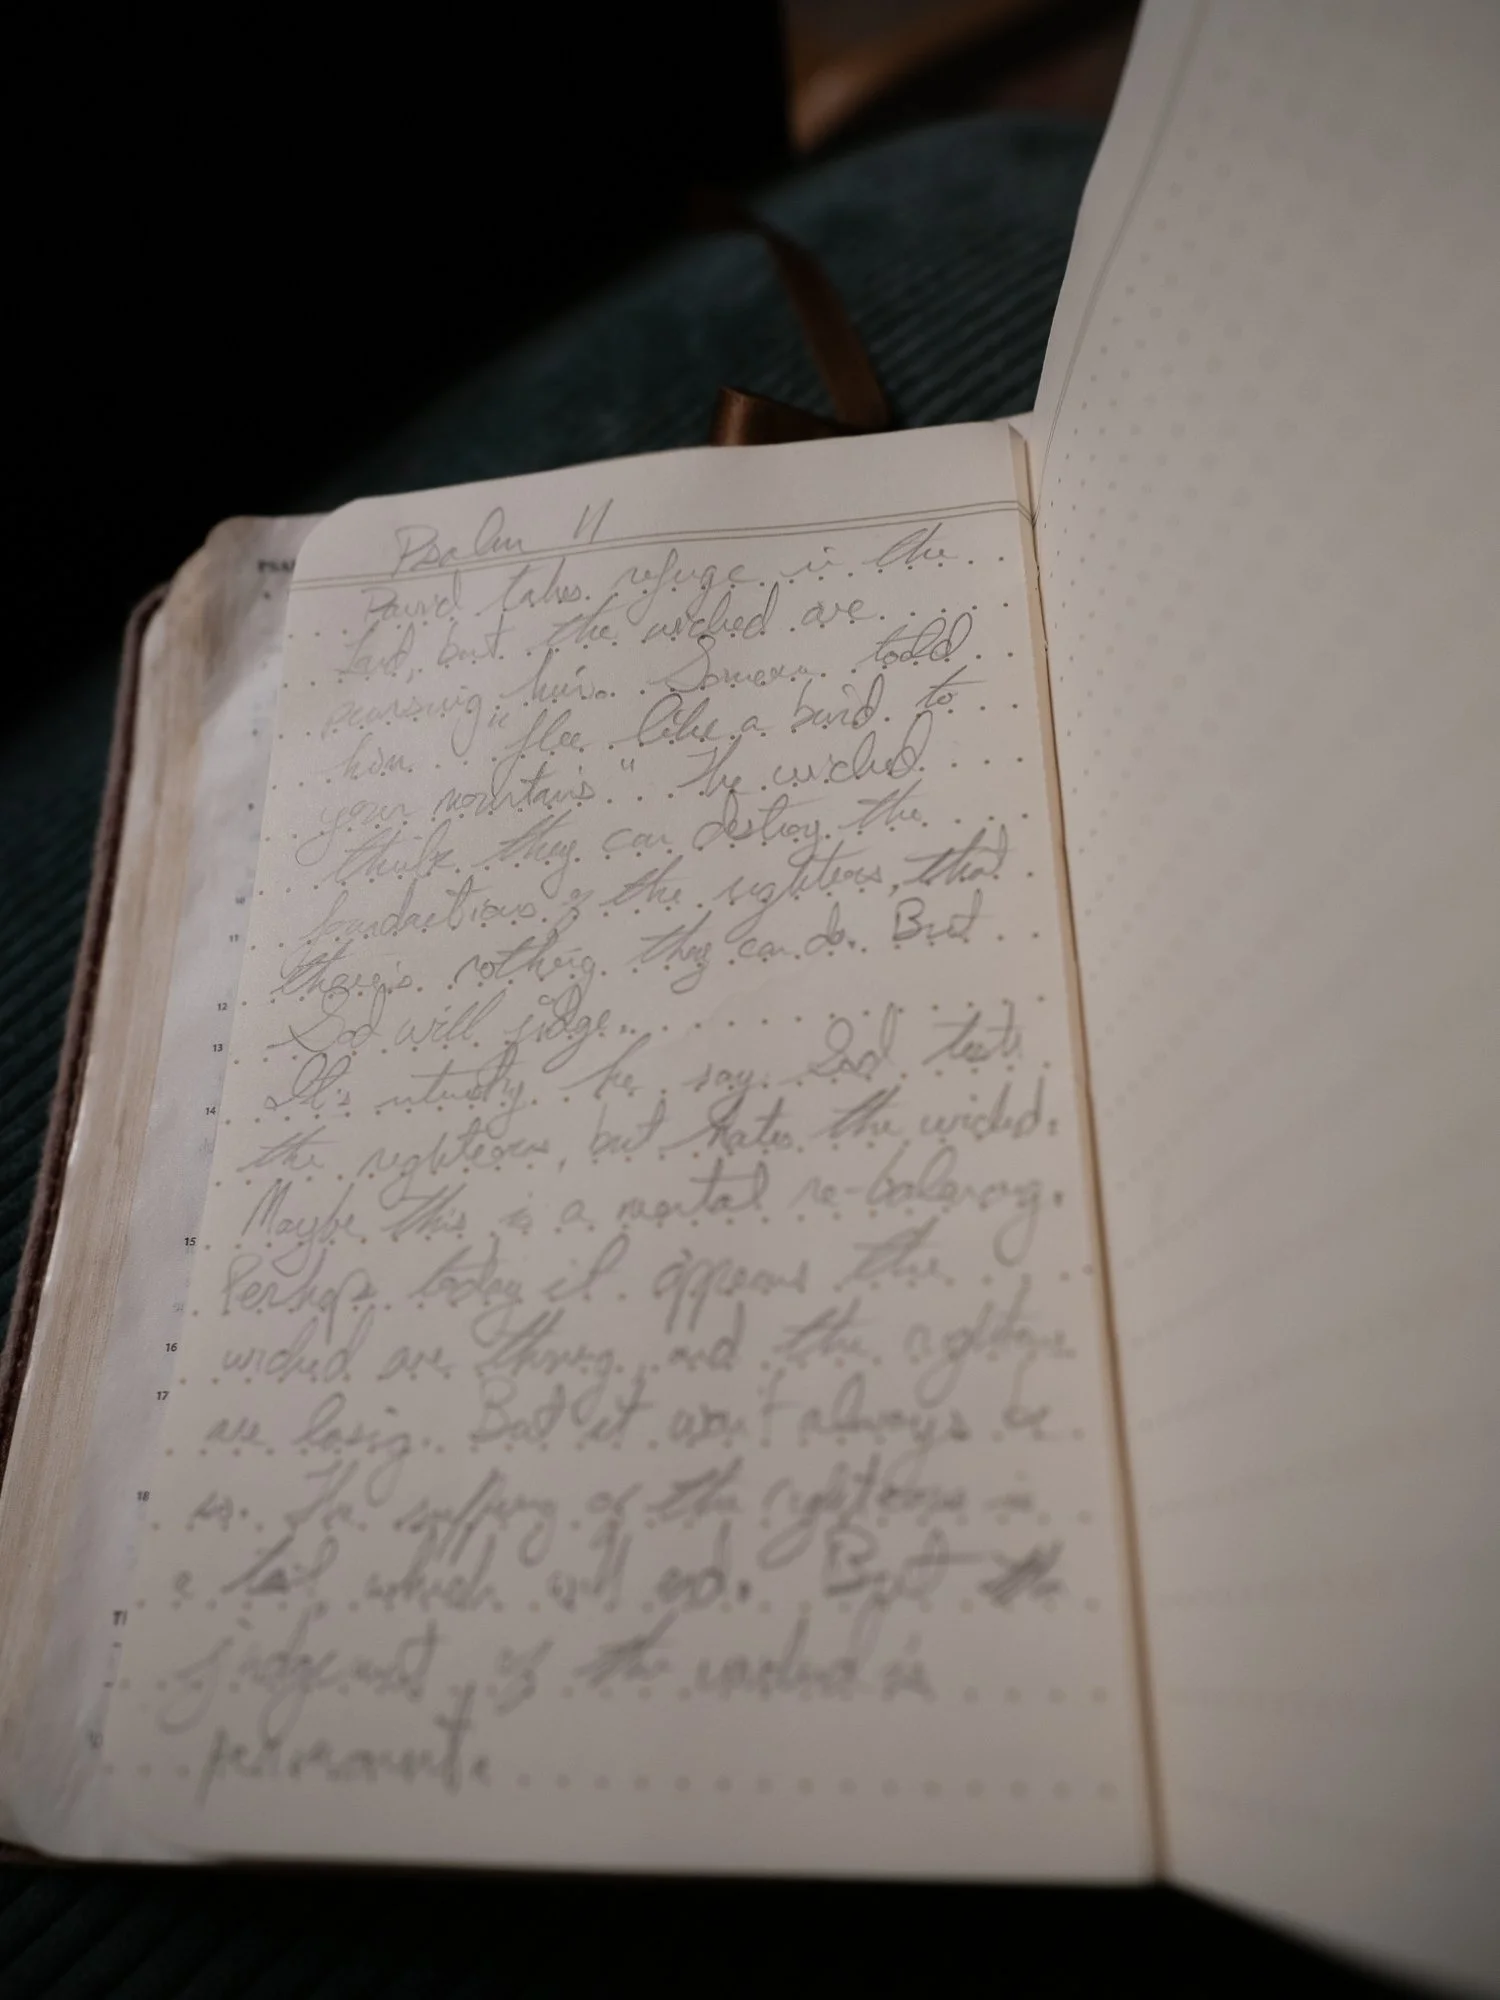 PSA
Psalm 11
David takes refuge in the
Lord, but the wicked are
pursuing him. Someone told
him "flee like a bird to
your mountains" The wicked
think they can destroy the
foundations of the righteous, that
there's nothing they can do. But
God will judge.
It's interesting he say God tests
the righteous, but hates the wicked.
Maybe this is a mental re-balancing.
Perhaps today it appears the
wicked are thriving and the righteous
are losing. But it won't always be
so. The suffering of the righteous is
a test which will end. But the
judgement of the wicked is
permanent.
10
11
12
13
14
15
16
17
18